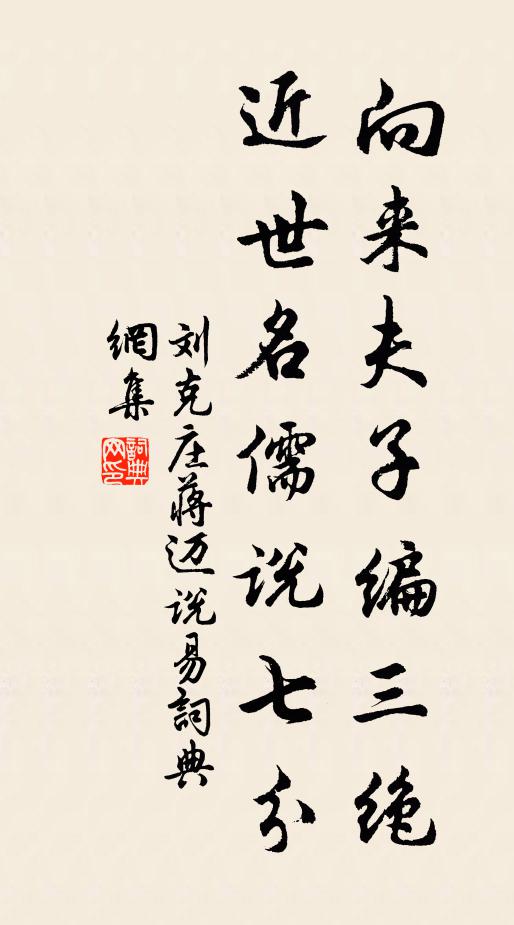 向来夫子编三绝
近世名儒说七分
刘克庄蒋迈说易詞典
網集
詞典
网印